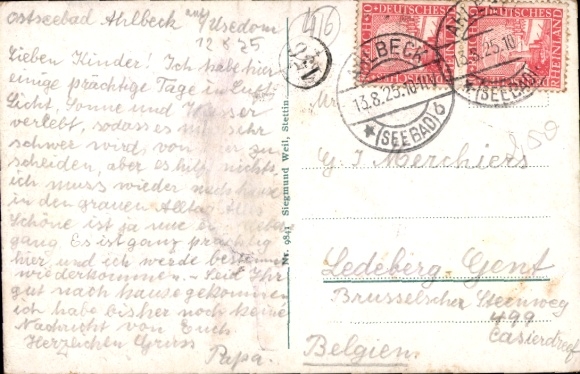 Ostseebad Ahlbeck auf Usedom
12 8 25
Lieben Kinder! Ich habe hier
einige prächtige Tage in Luft
Licht, Sonne und Wasser
verlebt, sodass es mir sehr
schwer wird, von hier zu
scheiden, aber es hilft nichts,
ich muss wieder nach hause
in den grauen Alltag. Alles
Schöne ist ja nur ein
gang. Es ist ganz prächtig
hier und ich werde bestimmt
wiederkommen. - Seid Ihr
gut nach hause gekommen
ich habe bisher noch keine
Nachricht von Euch
Herzlichen Gruss
Papa.
Nr. 9841 Siegmund Weil, Stettin
DEUTSCHES
RHEINLAND
AHLBECK
13.8.25.10-11V
(SEEBAD) b
DEUTSCHES
RHEINLAND
13.8.25.10
(SEEBAD)
G J Merchiers
Ledeberg-Gent
Brusselsche Steenweg
499
Casierdreef
Belgien